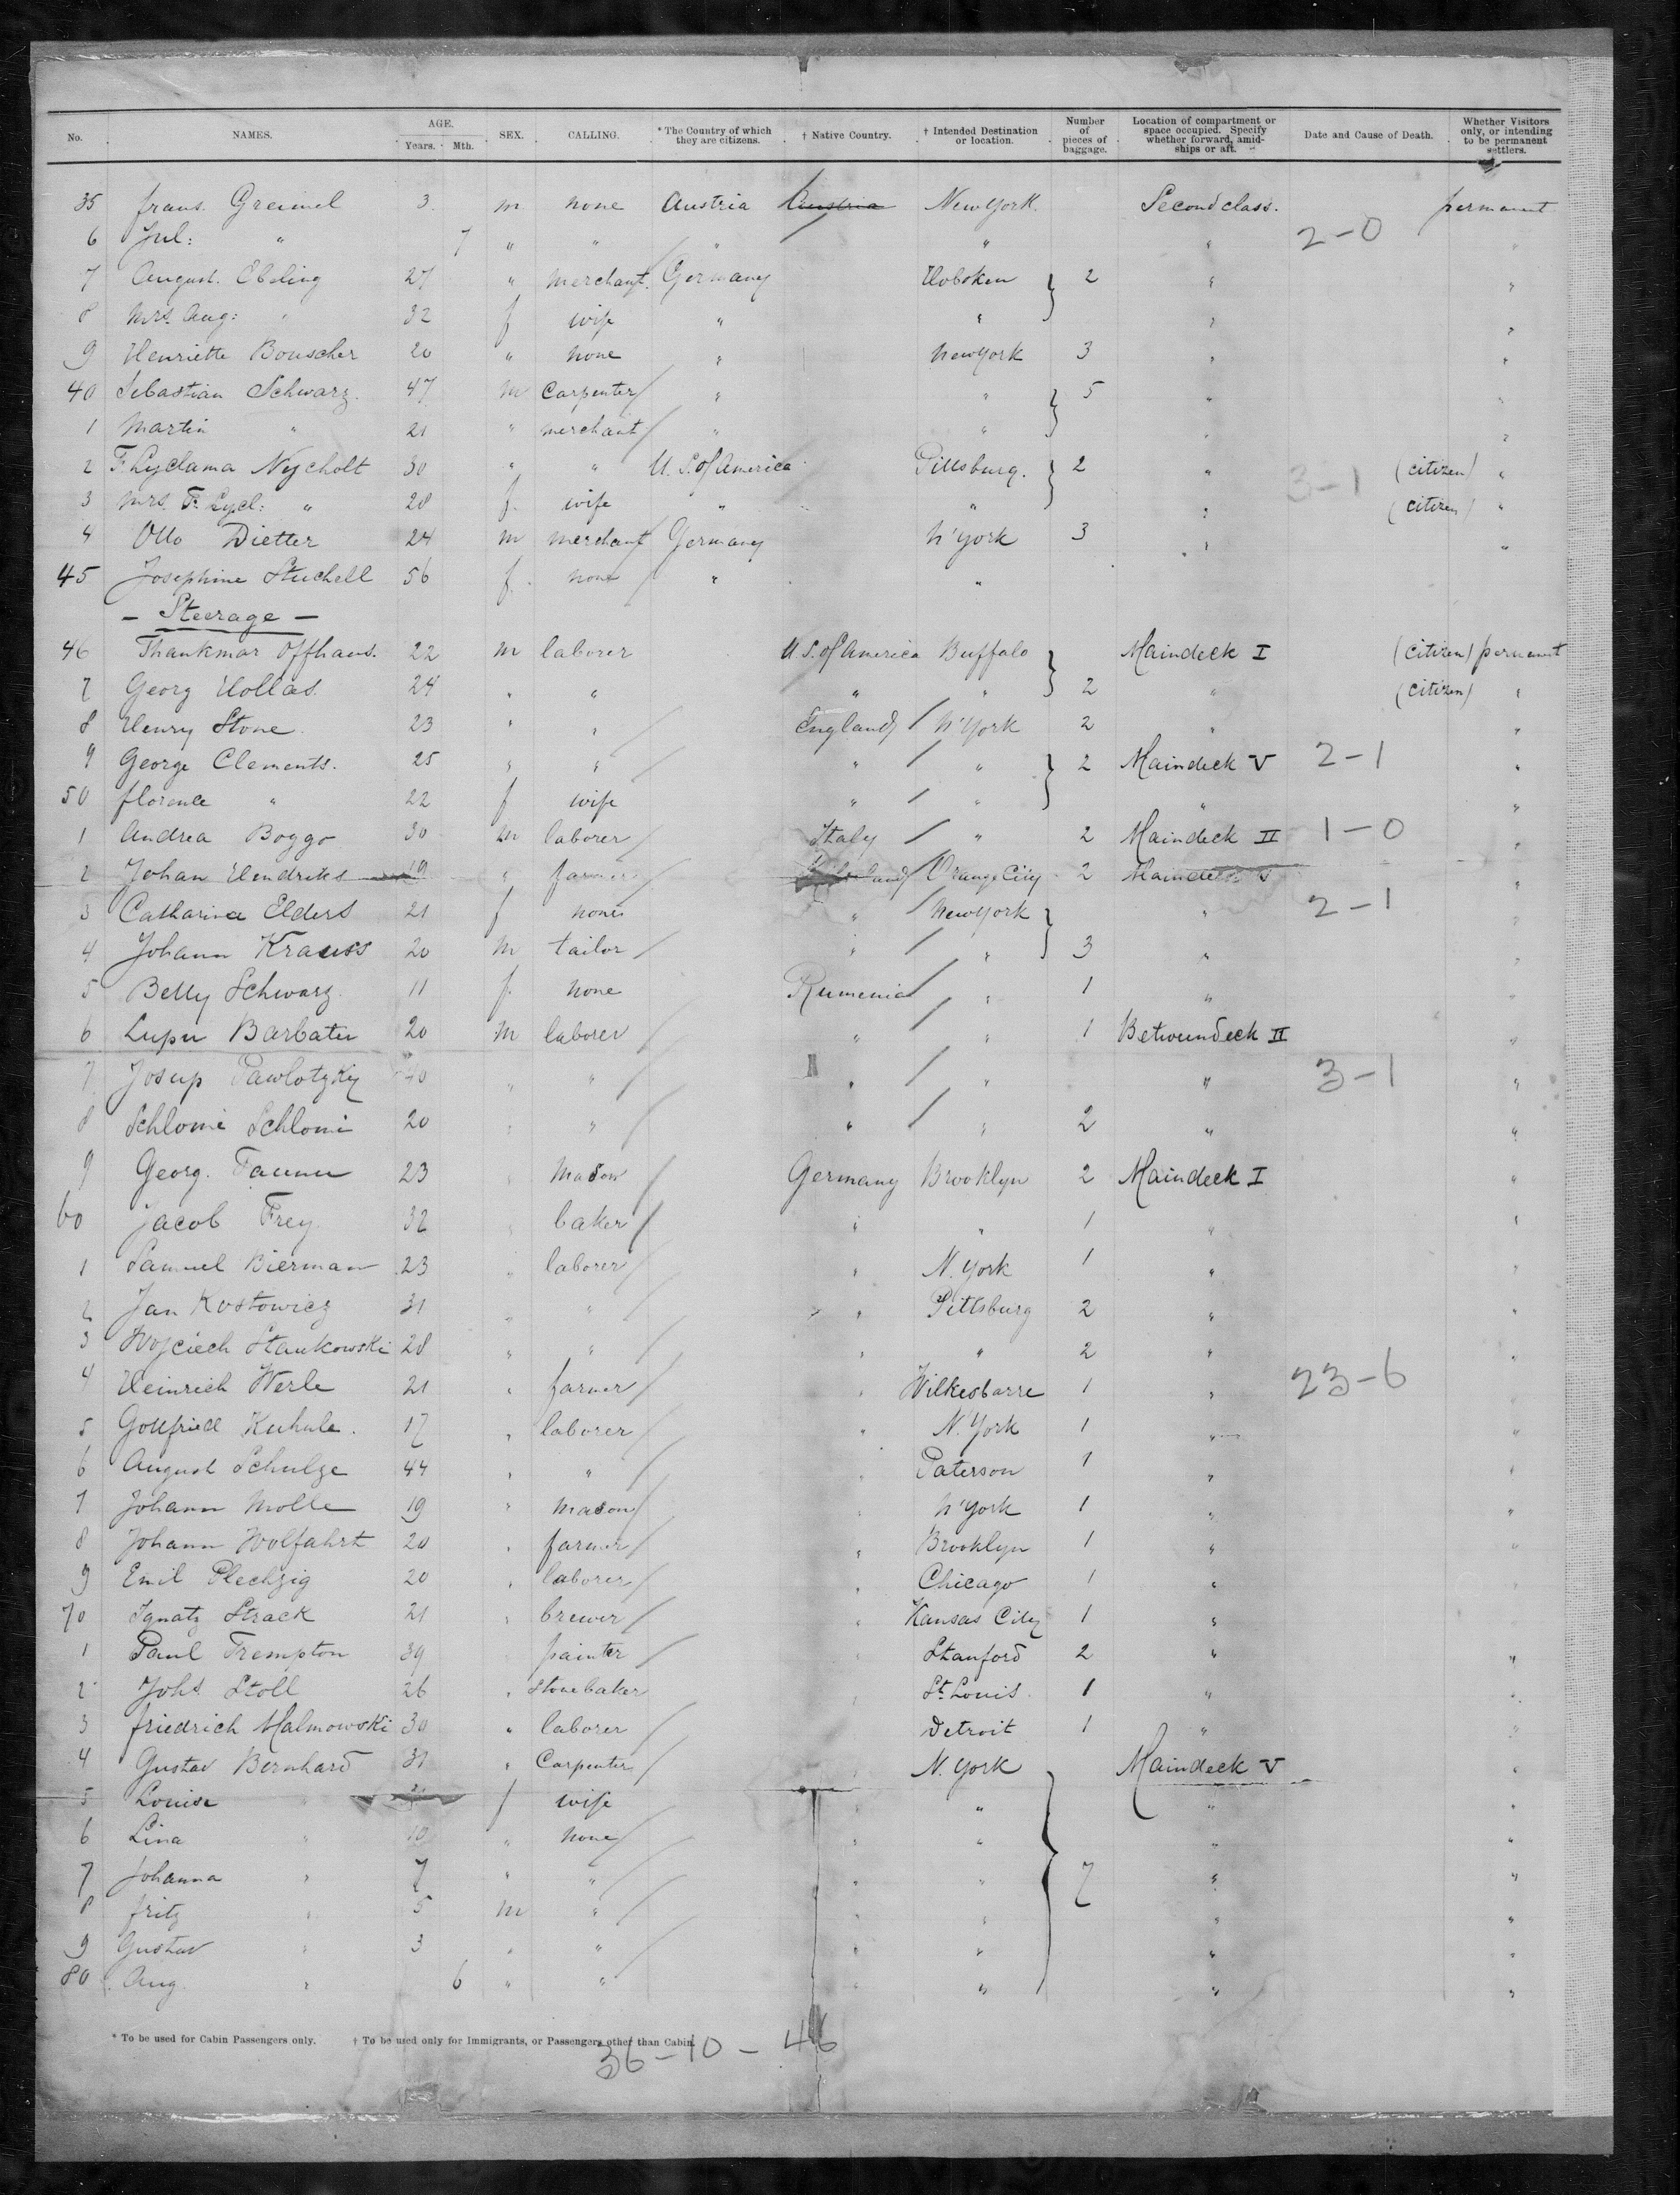 No. NAMES. AGE. Years. Mth. SEX. CALLING. * The Country of which they are citizens. † Native Country. † Intended Destination or location. Number of pieces of baggage. Location of compartment or space occupied. Specify whether forward, amidships or aft. Date and Cause of Death. Whether Visitors only, or intending to be permanent settlers.
35 frans. Greimel 3 m none Austria Austria New York. Second class. permanent
6 Jul: " 7 " " " " " 2-0 "
7 August. Ebeling 27 " merchant. Germany Hoboken 2 " "
8 Mrs. Aug: " 32 f wife " " " "
9 Henriette Bouscher 20 " none " New York 3 " "
40 Sebastian Schwarz. 47 m Carpenter " " 5 " "
1 Martin " 21 " merchant " " " "
2 F. Lyclama Nycholt 30 " " U. S. of America Pittsburg. 2 " 3-1 (citizen) "
3 Mrs. F. Lycl: " 28 f. wife " " " (citizen) "
4 Otto Dietter 24 m merchant Germany N'York 3 " "
45 Josephine Stuchell 56 f. none " "
- Steerage -
46 Thankmar Offhaus. 22 m laborer U S. of America Buffalo Maindeck I (citizen) permanent
7 Georg Hollas. 24 " " " " 2 " (citizen) "
8 Henry Stone 23 " " England N'York 2 " "
9 George Clements. 25 " " " " 2 Maindeck V 2-1 "
50 florence " 22 f wife " " " "
1 Andrea Boggo 30 m laborer Italy " 2 Maindeck II 1-0 "
2 Johan Hendriks 19 " farmer Orange City 2 Maindeck V "
3 Catharina Elders 21 f none " New York " 2-1 "
4 Johann Krauss 20 m tailor " " 3 " "
5 Betty Schwarz 11 f. none Rumenia " 1 " "
6 Lupu Barbatu 20 m laborer " " 1 Betweendeck II "
7 Josup Pawlotzky 40 " " " " " 3-1 "
8 Schlomi Schlomi 20 " " " " 2 " "
9 Georg. 23 " mason Germany Brooklyn 2 Maindeck I "
60 Jacob Frey 32 " baker " " 1 " "
1 Samuel Bierman 23 " laborer " N. York 1 " "
2 Jan Kostowicz 31 " " " Pittsburg 2 " "
3 Wojciech Stankowski 28 " " " " 2 " "
4 Heinrich Werle 21 " farmer " Wilkesbarre 1 " 23-6 "
5 Gottfried Kuhnle. 17 " laborer " N. York 1 " "
6 August Schulze 44 " " " Paterson 1 " "
7 Johann Molle 19 " mason " N'York 1 " "
8 Johann Wolfahrt 20 " farmer " Brooklyn 1 " "
9 Emil Plechzig 20 " laborer " Chicago 1 " "
70 Ignatz Strack 21 " brewer " Kansas City 1 " "
1 Paul Trempton 39 " painter Stanford 2 " "
2 Johs Stoll 26 " stonebaker " St. Louis 1 " "
3 friedrich Malmowski 30 " laborer Detroit 1 " "
4 Gustav Bernhard 31 " Carpenter " N. York Maindeck V "
5 Louise " f wife " " " "
6 Lina " 10 " none " " " "
7 Johanna " 7 " " " " 7 " "
8 fritz " 5 m " " " " "
9 Gustav " 3 " " " " " "
80 Aug. " 6 " " " " " "
* To be used for Cabin Passengers only. † To be used only for Immigrants, or Passengers other than Cabin.
36-10-46